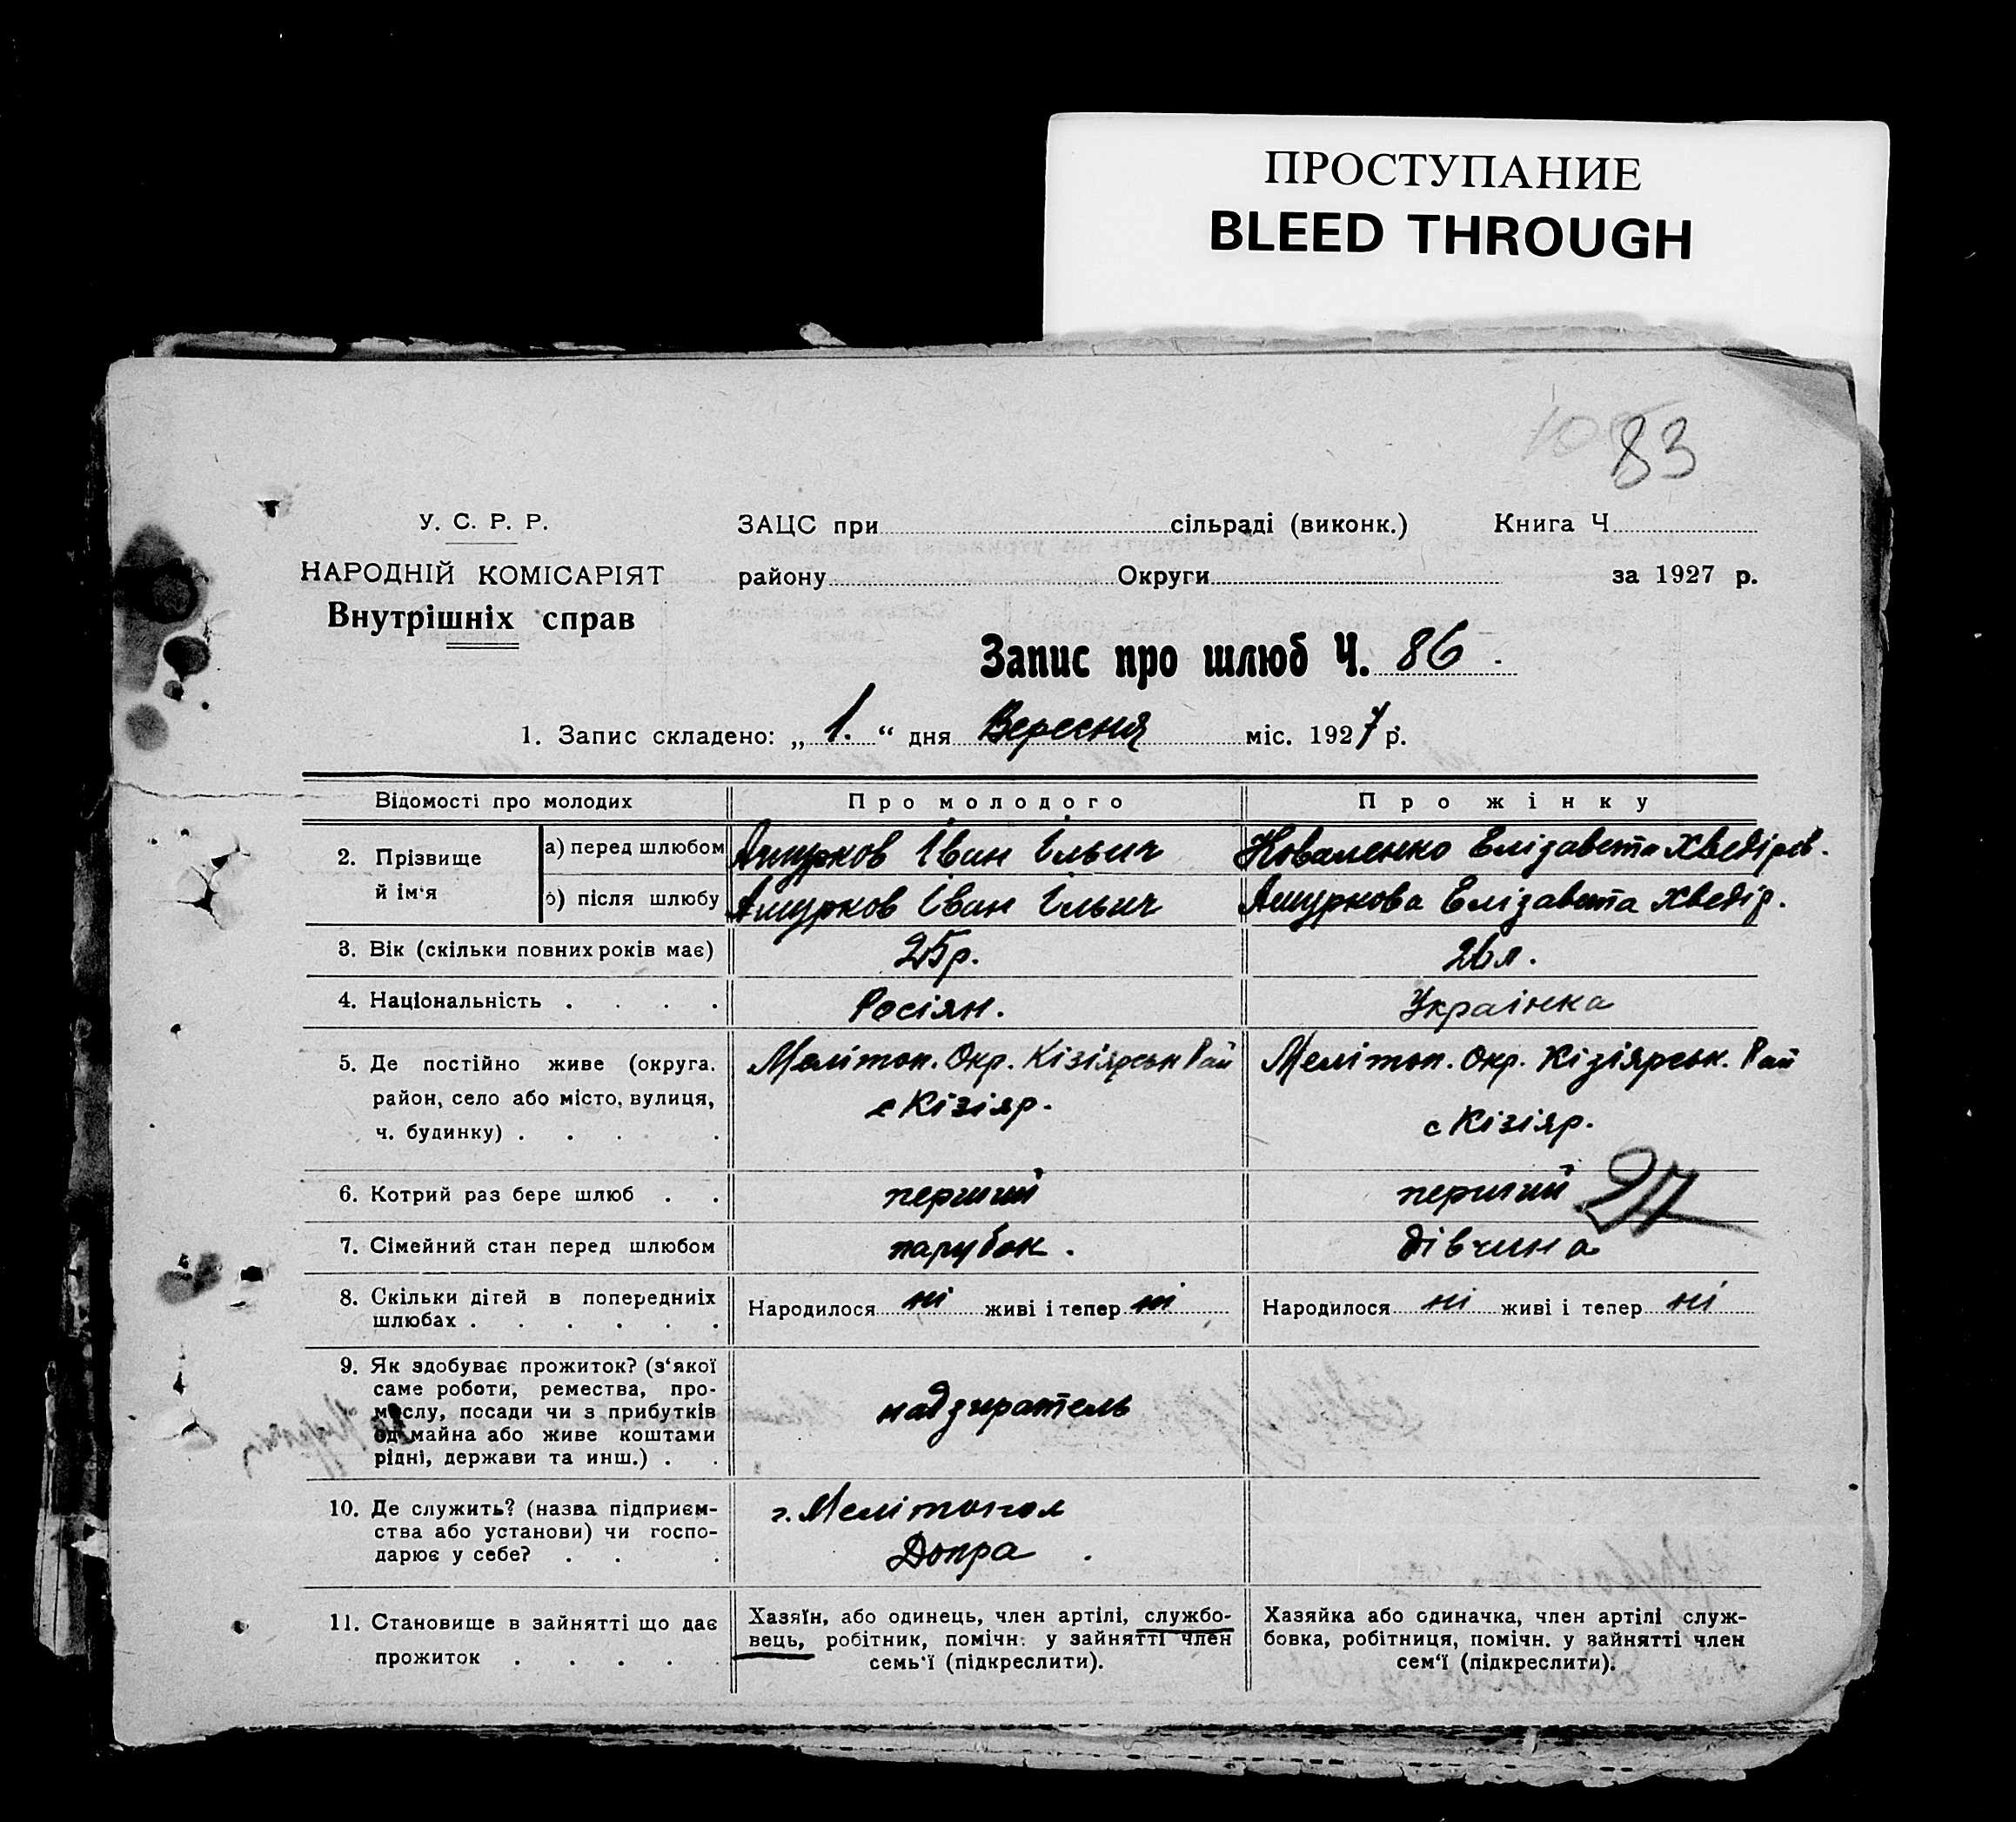 ПРОСТУПАНИЕ
BLEED THROUGH
83
У. С. Р. Р.
НАРОДНІЙ КОМІСАРІЯТ
Внутрішніх справ
ЗАЦС при сільраді (виконк.) Книга Ч
району Округи за 1927 р.
Запис про шлюб Ч. 86.
1. Запис складено: „1.“ дня Вересня міс. 1927 р.
Відомості про молодих Про молодого Про жінку
2. Прізвище й ім‘я
а) перед шлюбом Ашурков Іван Ільич Коваленко Елізавета Хведіров.
б) після шлюбу Ашурков Іван Ільич Ашуркова Елізавета Хведір.
3. Вік (скільки повних років має) 25р. 26л.
4. Національність . . . . Росіян. Украінка
5. Де постійно живе (округа. Мелітоп. Окр. Кізіярськ Рай Мелітоп. Окр. Кізіярськ. Рай
район, село або місто, вулиця, с Кізіяр. с Кізіяр.
ч. будинку) . . . .
6. Котрий раз бере шлюб . . перший перший
27
7. Сімейний стан перед шлюбом парубок. дівчина
8. Скільки дітей в попередниіх Народилося ні живі і тепер ні Народилося ні живі і тепер ні
шлюбах . . . . . .
9. Як здобуває прожиток? (з‘якої
саме роботи, ремества, про-
мислу, посади чи з прибутків надзиратель
од майна або живе коштами
рідні, держави та инш.) . .
10. Де служить? (назва підприєм- г. Мелітопол
ства або установи) чи госпо- Допра.
дарює у себе? . . .
11. Становище в зайнятті що дає
прожиток . . . . .
Хазяїн, або одинець, член артілі, службо-
вець, робітник, помічн. у зайнятті член
семь‘ї (підкреслити).
Хазяйка або одиначка, член артілі служ-
бовка, робітниця, помічн. у зайнятті член
сем‘ї (підкреслити).